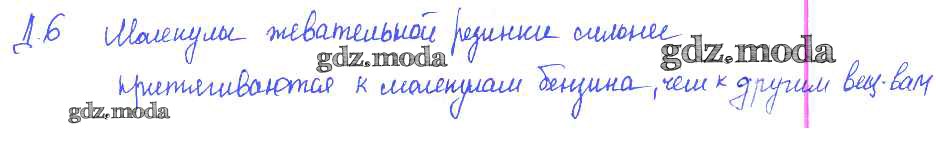 Д.6 Молекулы жевательной резинки сильнее
gdz.moda
gdz.moda
притягиваются к молекулам бензина, чем к другим вещ-вам
gdz.moda